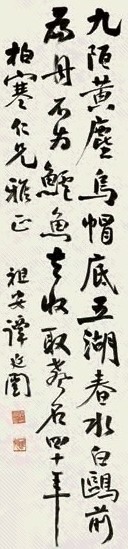 九陌黃塵烏帽底五湖春水白鷗前
為舟不為鱸魚去收取聲名四十年
柏寒仁兄雅正
祖安譚延闓